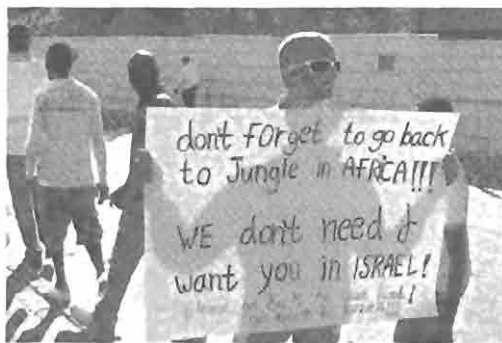 don't FOrget to go back
to Jungle in AFRiCA!!!
WE don't need &
want you in ISRAEL!